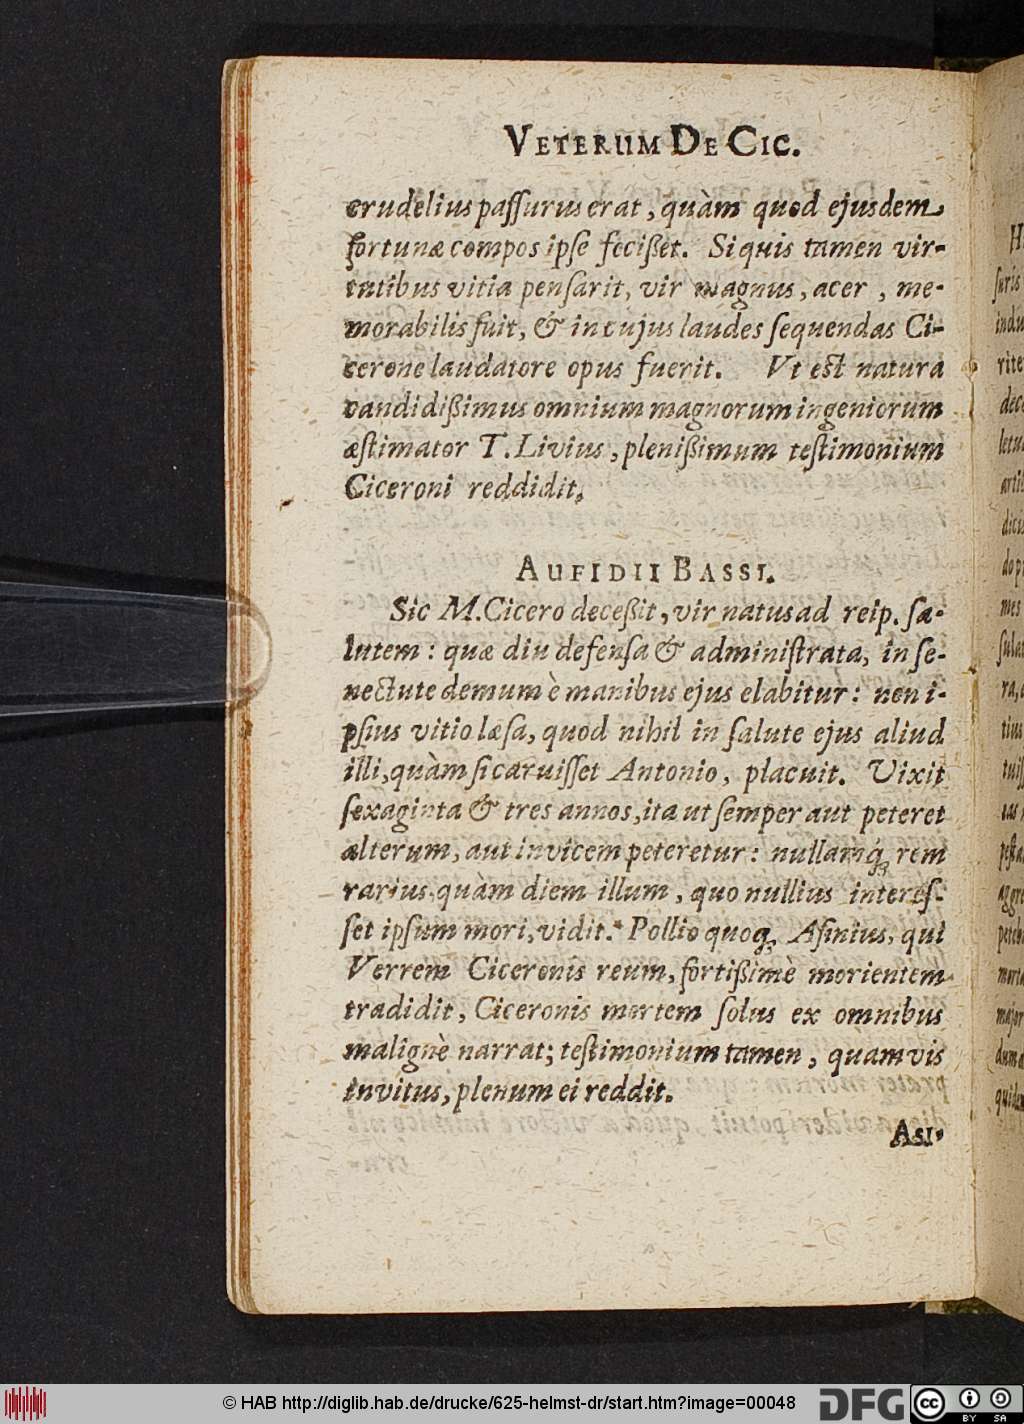 VETERUM DE CIC.
crudelius passurus erat, quàm quod ejusdem
fortunæ compos ipse fecißet. Si quis tamen vir-
tutibus vitia pensarit, vir magnus, acer, me-
morabilis fuit, & in cujus laudes sequendas Ci-
cerone laudatore opus fuerit. Vt est natura
candidißimus omnium magnorum ingeniorum
æstimator T. Livius, plenißimum testimonium
Ciceroni reddidit.
AUFIDII BASSI.
Sic M. Cicero deceßit, vir natus ad reip. sa-
lutem: quæ diu defensa & administrata, in se-
nectute demum è manibus ejus elabitur: non i-
psius vitio læsa, quod nihil in salute ejus aliud
illi, quàm si caruisset Antonio, placuit. Vixit
sexaginta & tres annos, ita ut semper aut peteret
alterum, aut invicem peteretur: nullamq́; rem
rarius, quàm diem illum, quo nullius interes-
set ipsum mori, vidit. Pollio quoq; Asinius, qui
Verrem Ciceronis reum, fortißimè morientem
tradidit, Ciceronis mortem solus ex omnibus
malignè narrat; testimonium tamen, quamvis
invitus, plenum ei reddit.
ASI-
© HAB http://diglib.hab.de/drucke/625-helmst-dr/start.htm?image=00048
DFG
cc BY SA